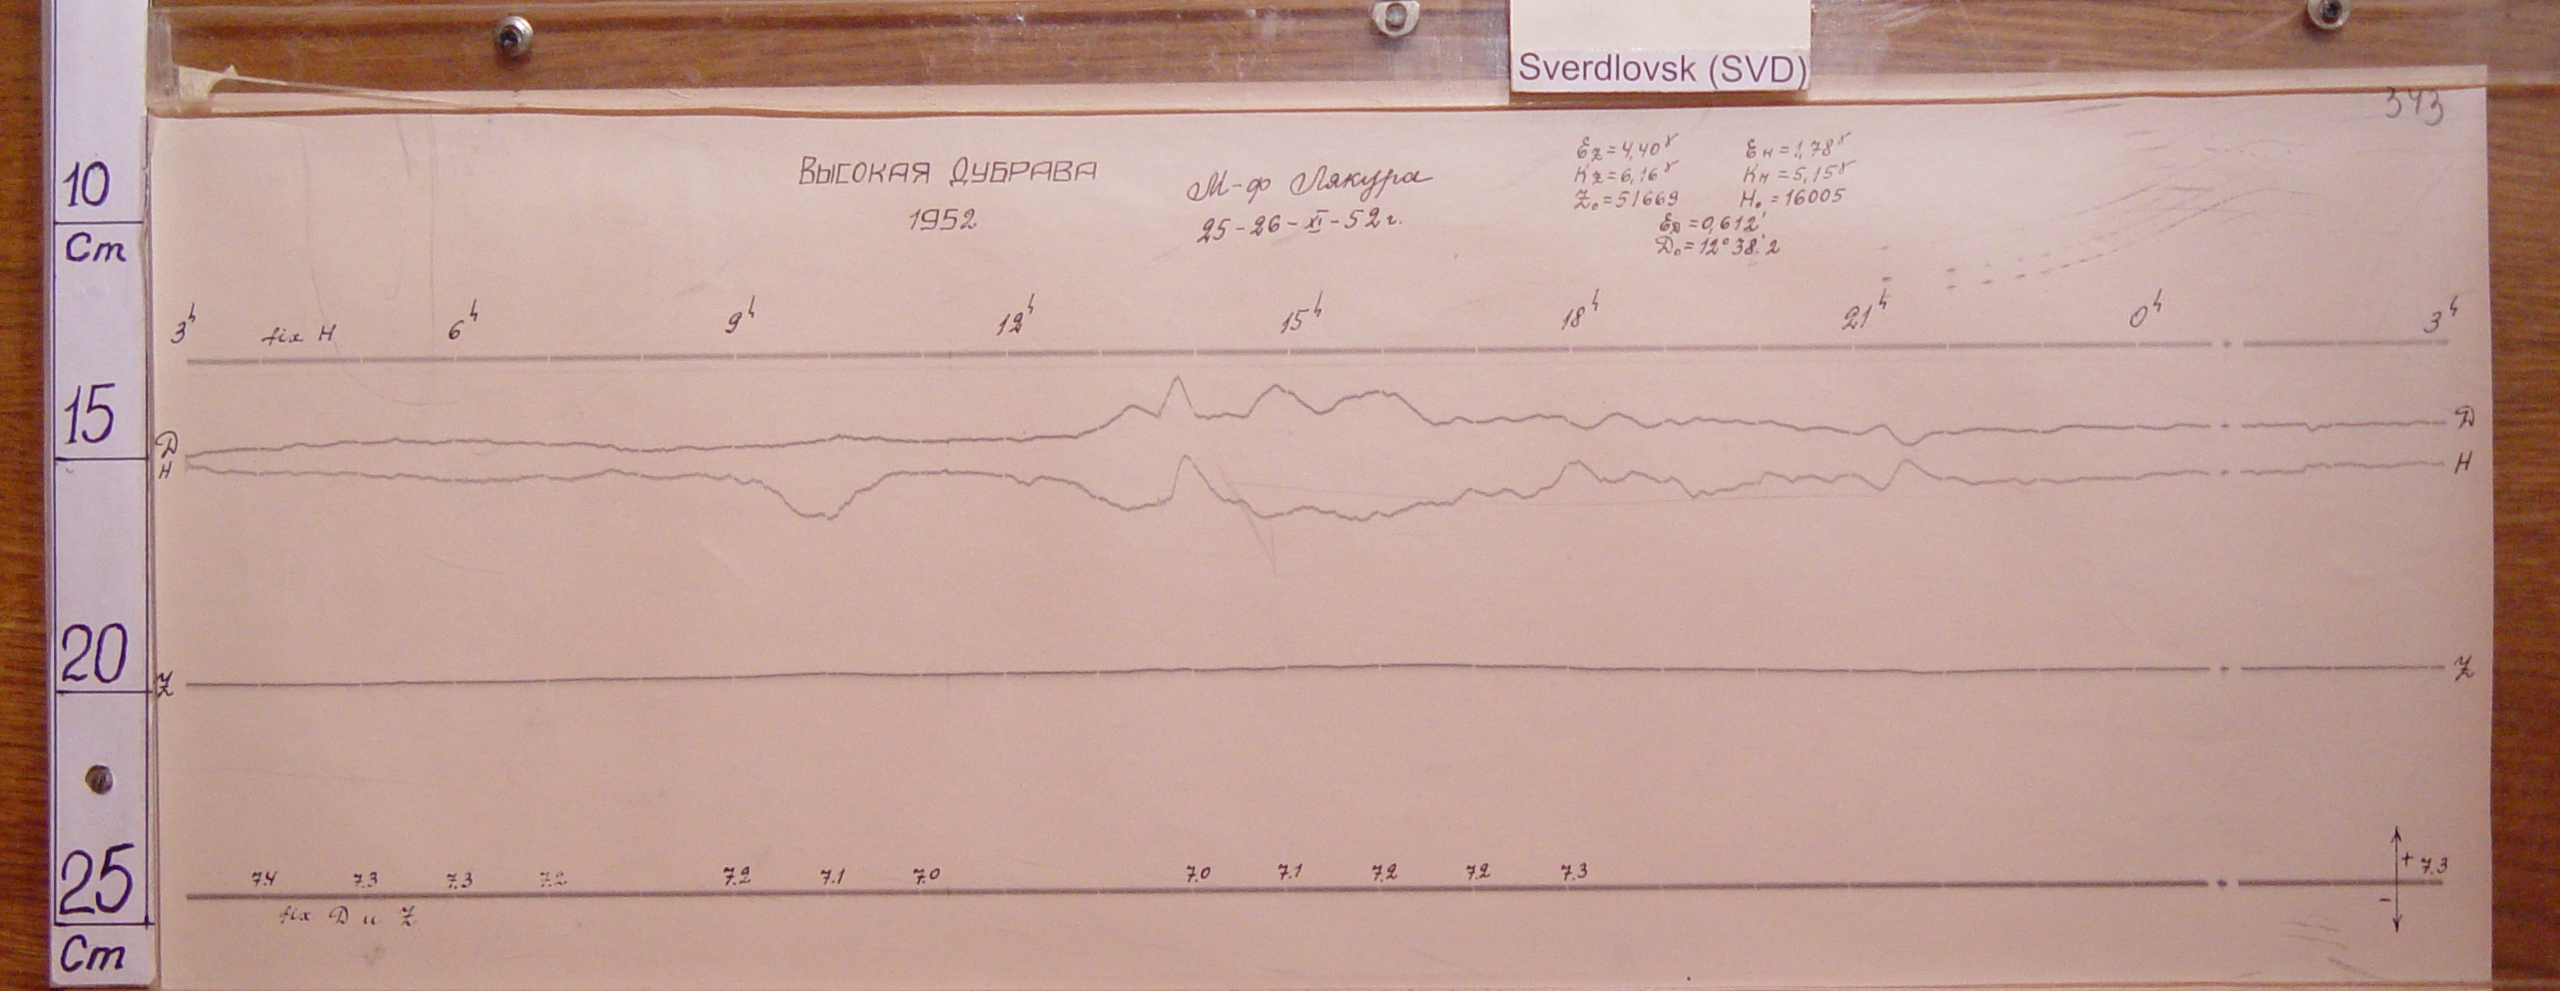 Sverdlovsk (SVD)
343
10
Cm
15
20
25
Cm
ВЫСОКАЯ ДУБРАВА
1952
М-ф Лякура
25-26-XI-52 г.
Ez=4,40γ Eн=1,78γ
Kz=6,16γ Kн=5,15γ
Z₀=51669 H₀=16005
Eд=0,612'
Д₀=12°38'.2
3h 6h 9h 12h 15h 18h 21h 0h 3h
fix H
Д Д
H H
Z Z
7.4 7.3 7.3 7.2 7.2 7.1 7.0 7.0 7.1 7.2 7.2 7.3 7.3
+
-
fix Д и Z